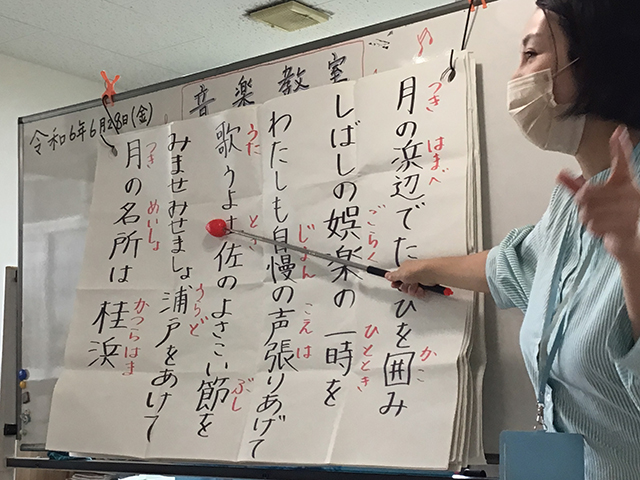 令和6年6月28日(金)
音楽教室
つき はまべ かこ
月の浜辺でた ひを囲み
ごらく ひととき
しばしの娯楽の一時を
じまん こえ は
わたしも自慢の声張りあげて
うた とさ ぶし
歌うよ土佐のよさこい節を
うらど
みませみせましょ浦戸をあけて
つき めいしょ かつらはま
月の名所は 桂浜